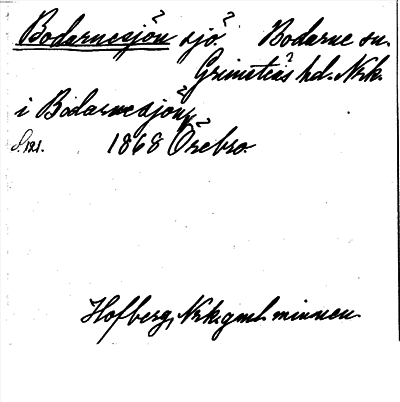 Bodarnesjön sjö. Bodarne sn.
Grimstens hd. Nrk.
i Bodarnesjön
S. 121. 1868 Örebro.
Hofberg, Nrk. gml. minnen